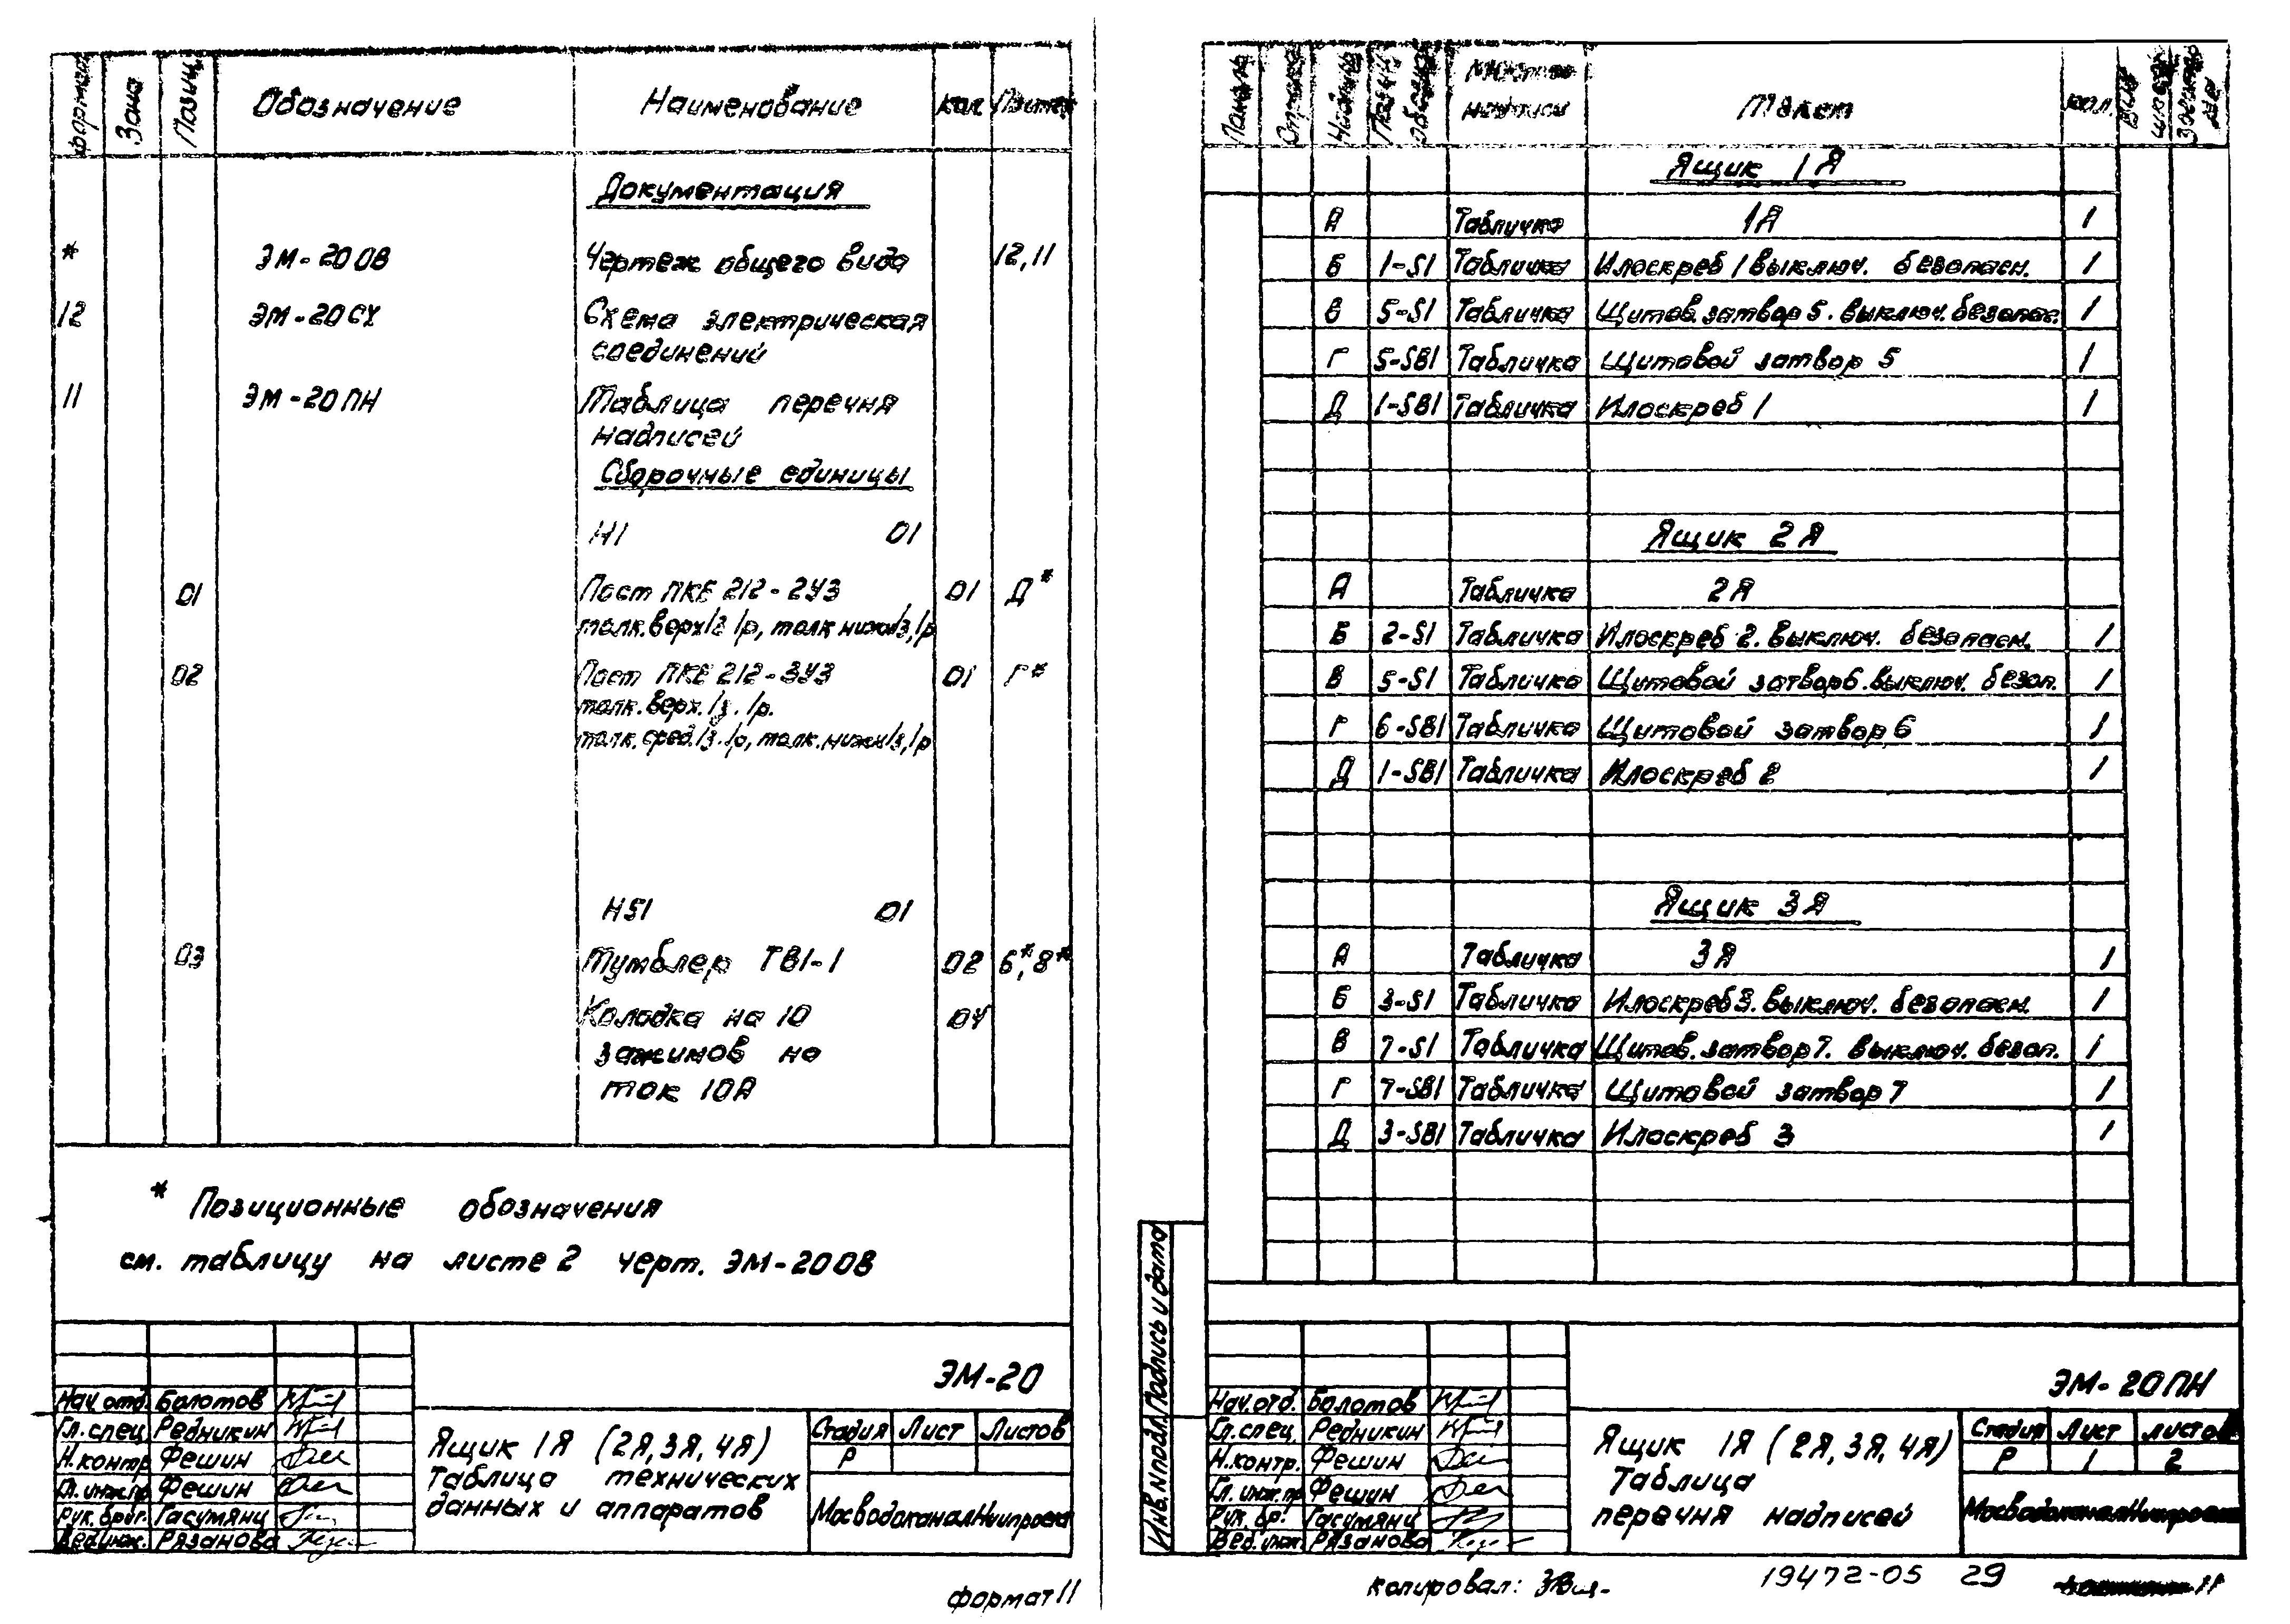 формат Зона Позиц. Обозначение Наименование кол Примеч
Документация
* ЭМ-20 ОВ Чертеж общего вида 12,11
12 ЭМ-20 СХ Схема электрическая
соединений
11 ЭМ-20 ПН Таблица перечня
надписей
Сборочные единицы
Н1 01
01 Пост ПКЕ 212-2У3 01 Д*
толк.верх1з 1р, толк нижн1з,1р
02 Пост ПКЕ 212-3У3 01 Г*
толк.верх.1з.1р.
толк.сред.1з.1р, толк.нижн1з,1р
НS1 01
03 Тумблер ТВ1-1 02 Б*,В*
Колодка на 10 04
зажимов на
ток 10А
* Позиционные обозначения
см. таблицу на листе 2 черт. ЭМ-20 ОВ
ЭМ-20
Нач.отд. Болотов
Гл.спец. Редникин
Н.контр Фешин
Гл.инж.пр Фешин
Рук.бриг. Гасумянц
Вед.инж. Рязанова
Ящик 1Я (2Я,3Я,4Я)
Таблица технических
данных и аппаратов
Стадия Лист Листов
Р
МосводоканалНиипроект
формат 11
Панель надписи Текст кол.
Ящик 1Я
А Табличка 1Я 1
Б 1-S1 Табличка Илоскреб 1 выключ. безопасн. 1
В 5-S1 Табличка Щитов.затвор 5. выключ.безопас. 1
Г 5-SB1 Табличка Щитовой затвор 5 1
Д 1-SB1 Табличка Илоскреб 1 1
Ящик 2Я
А Табличка 2Я
Б 2-S1 Табличка Илоскреб 2. выключ. безопасн. 1
В 5-S1 Табличка Щитовой затвор6.выключ. безоп. 1
Г 6-SB1 Табличка Щитовой затвор 6 1
Д 1-SB1 Табличка Илоскреб 2 1
Ящик 3Я
А Табличка 3Я 1
Б 3-S1 Табличка Илоскреб3.выключ. безопасн. 1
В 7-S1 Табличка Щитов.затвор7. выключ. безоп. 1
Г 7-SB1 Табличка Щитовой затвор 7 1
Д 3-SB1 Табличка Илоскреб 3 1
Инв.N подл. Подпись и дата
ЭМ-20 ПН
Нач.отд. Болотов
Гл.спец. Редникин
Н.контр. Фешин
Гл.инж.пр Фешин
Рук.бр. Гасумянц
Вед.инж. Рязанова
Ящик 1Я (2Я, 3Я, 4Я)
Таблица
перечня надписей
Стадия Лист Листов
Р 1 2
МосводоканалНиипроект
копировал:
19472-05 29
11